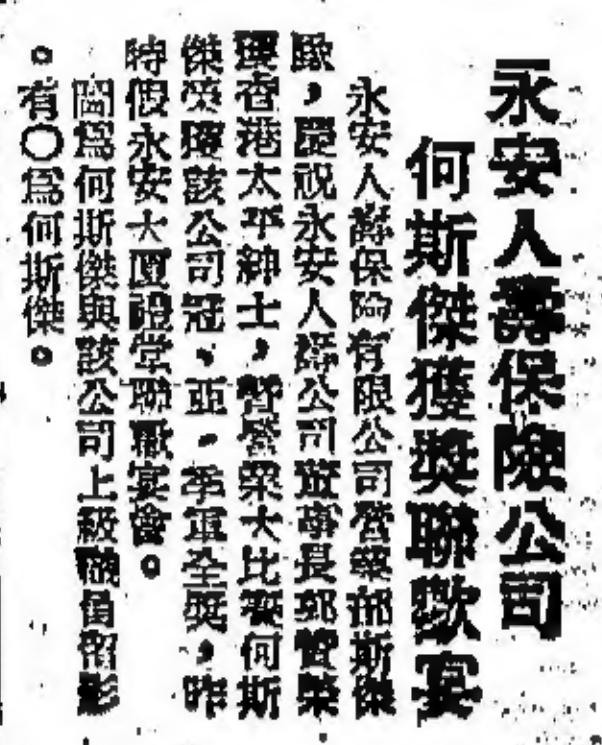 永安人壽保險公司
何斯傑獲獎聯歡宴
永安人壽保險有限公司營業部斯傑
歐,慶祝永安人壽公司董事長郭贊榮
獲香港太平紳士,暨營業大比賽何斯
傑榮獲該公司冠、亞、季軍全獎,昨
時假永安大廈禮堂聯歡宴會。
圖爲何斯傑與該公司上級職員留影
。有〇爲何斯傑。